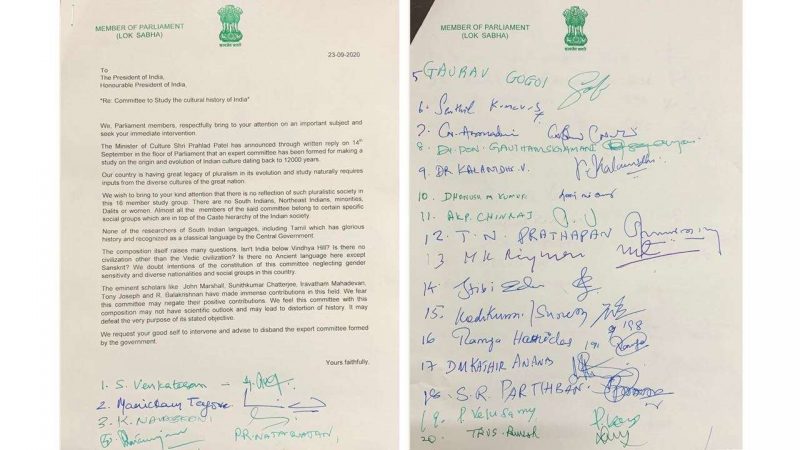 MEMBER OF PARLIAMENT
(LOK SABHA)
सत्यमेव जयते
23-09-2020
To
The President of India,
Honourable President of India,
"Re: Committee to Study the cultural history of India"
We, Parliament members, respectfully bring to your attention on an important subject and
seek your immediate intervention.
The Minister of Culture Shri Prahlad Patel has announced through written reply on 14th
September in the floor of Parliament that an expert committee has been formed for making a
study on the origin and evolution of Indian culture dating back to 12000 years.
Our country is having great legacy of pluralism in its evolution and study naturally requires
inputs from the diverse cultures of the great nation.
We wish to bring to your kind attention that there is no reflection of such pluralistic society in
this 16 member study group. There are no South Indians, Northeast Indians, minorities,
Dalits or women. Almost all the members of the said committee belong to certain specific
social groups which are in top of the Caste hierarchy of the Indian society.
None of the researchers of South Indian languages, including Tamil which has glorious
history and recognized as a classical language by the Central Government.
The composition itself raises many questions. Isn't India below Vindhya Hill? Is there no
civilization other than the Vedic civilization? Is there no Ancient language here except
Sanskrit? We doubt intentions of the constitution of this committee neglecting gender
sensitivity and diverse nationalities and social groups in this country.
The eminent scholars like John Marshall, Sunithkumar Chatterjee, Iravatham Mahadevan,
Tony Joseph and R. Balakrishnan have made immense contributions in this field. We fear
this committee may negate their positive contributions. We feel this committee with this
composition may not have scientific outlook and may lead to distortion of history. It may
defeat the very purpose of its stated objective.
We request your good self to intervene and advise to disband the expert committee formed
by the government.
Yours faithfully,
1. S. Venkatesan
2. Manickam Tagore
3. K. NAVASKANI
P.R. NATARAJAN,
MEMBER OF PARLIAMENT
(LOK SABHA)
सत्यमेव जयते
5 GAURAV GOGOI
6. Senthil Kumar. S
7.
8. Dr. DON. GAUTHAMSIGAMANI
9. DR KALANIDHI. V.
10. DHANUSH M KUMAR
11. AKP. CHINRAJ
12. T. N. PRATHAPAN
13
14
15. Kodikunnil Suresh
16 Ramya Haridas
17 DM KATHIR ANAND
18. S.R. PARTHIBAN
19. P. Velusamy
20.